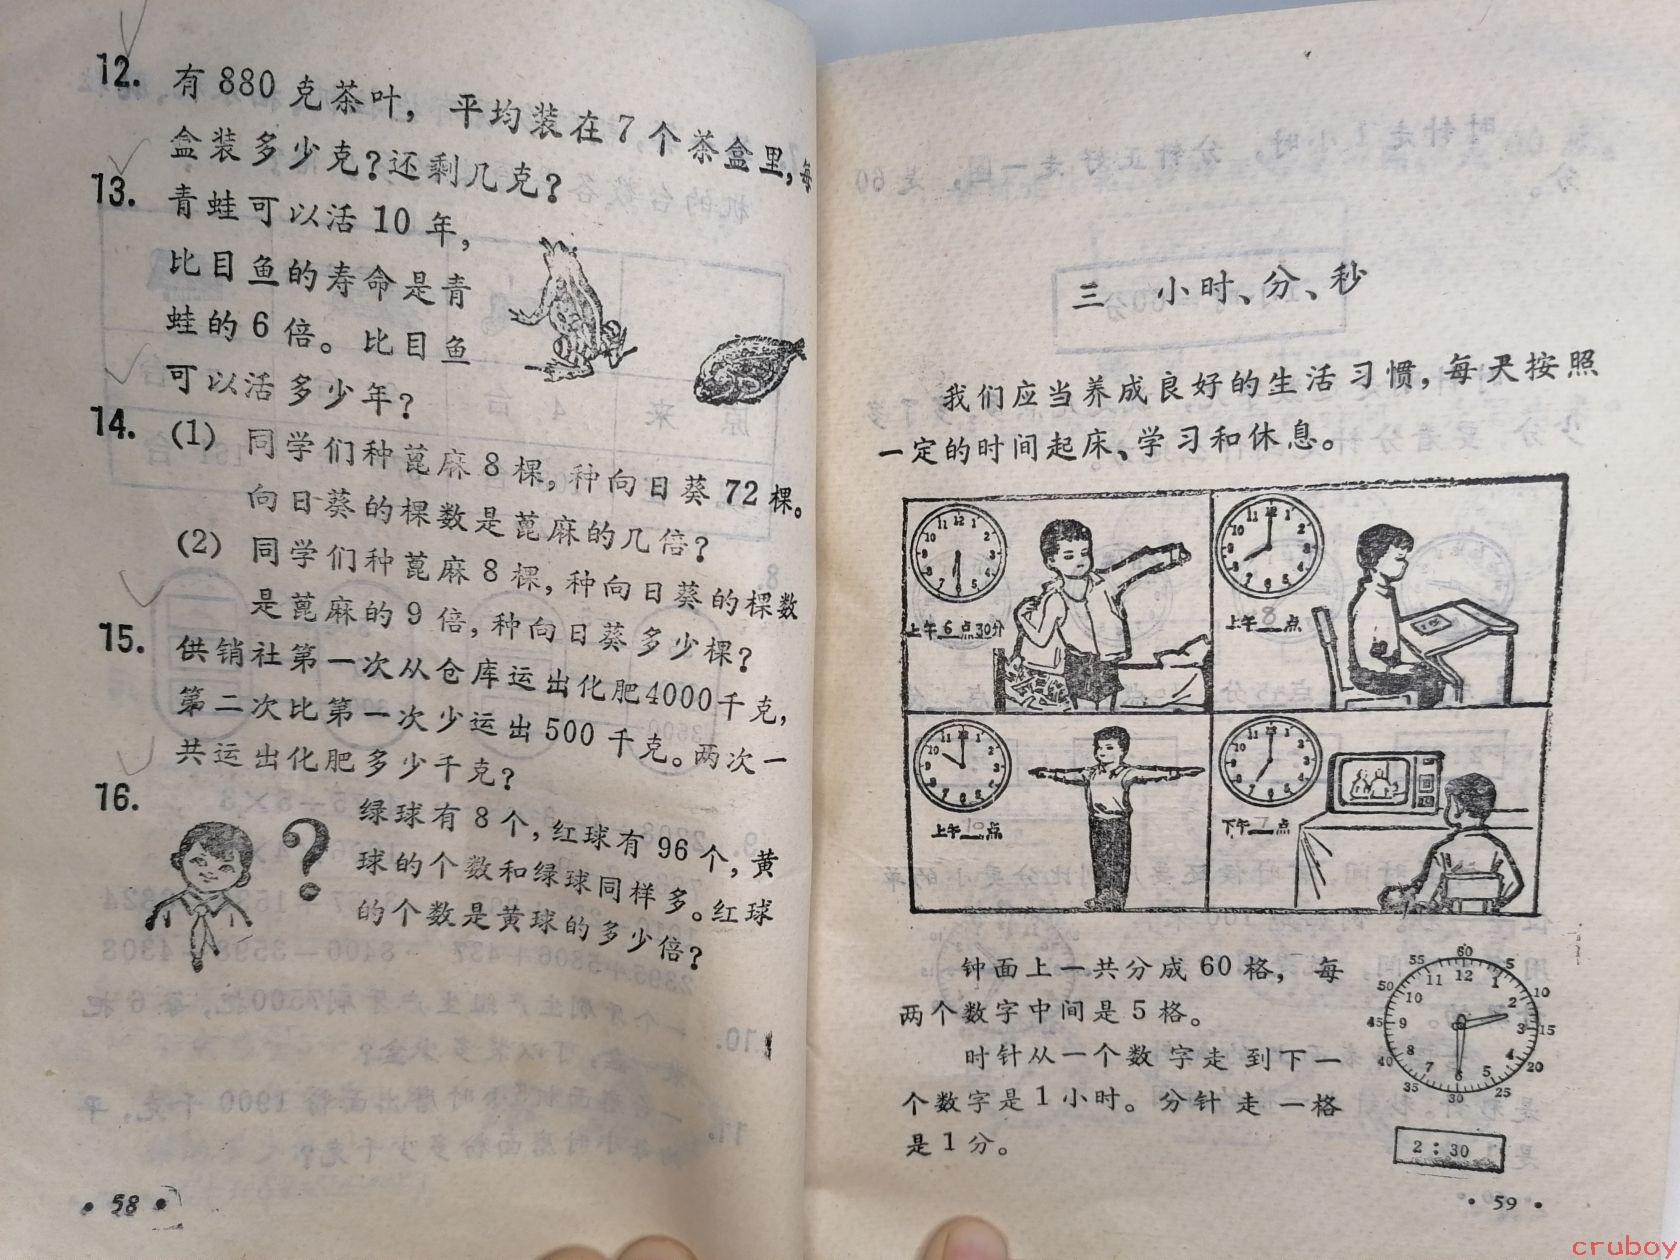 12. 有880克茶叶，平均装在7个茶盒里，每
盒装多少克？还剩几克？
13. 青蛙可以活10年，
比目鱼的寿命是青
蛙的6倍。比目鱼
可以活多少年？
14. (1) 同学们种蓖麻8棵，种向日葵72棵。
向日葵的棵数是蓖麻的几倍？
(2) 同学们种蓖麻8棵，种向日葵的棵数
是蓖麻的9倍，种向日葵多少棵？
15. 供销社第一次从仓库运出化肥4000千克，
第二次比第一次少运出500千克。两次一
共运出化肥多少千克？
16. 绿球有8个，红球有96个，黄
球的个数和绿球同样多。红球
的个数是黄球的多少倍？
?
• 58 •
三 小时、分、秒
我们应当养成良好的生活习惯，每天按照
一定的时间起床、学习和休息。
12 1 2 3 4 5 6 7 8 9 10 11
上午6点30分
12 1 2 3 4 5 6 7 8 9 10 11
上午8点
12 1 2 3 4 5 6 7 8 9 10 11
上午10点
12 1 2 3 4 5 6 7 8 9 10 11
下午7点
钟面上一共分成60格，每
两个数字中间是5格。
时针从一个数字走到下一
个数字是1小时。分针走一格
是1分。
60 5 10 15 20 25 30 35 40 45 50 55
12 1 2 3 4 5 6 7 8 9 10 11
2:30
• 59 •
cruboy